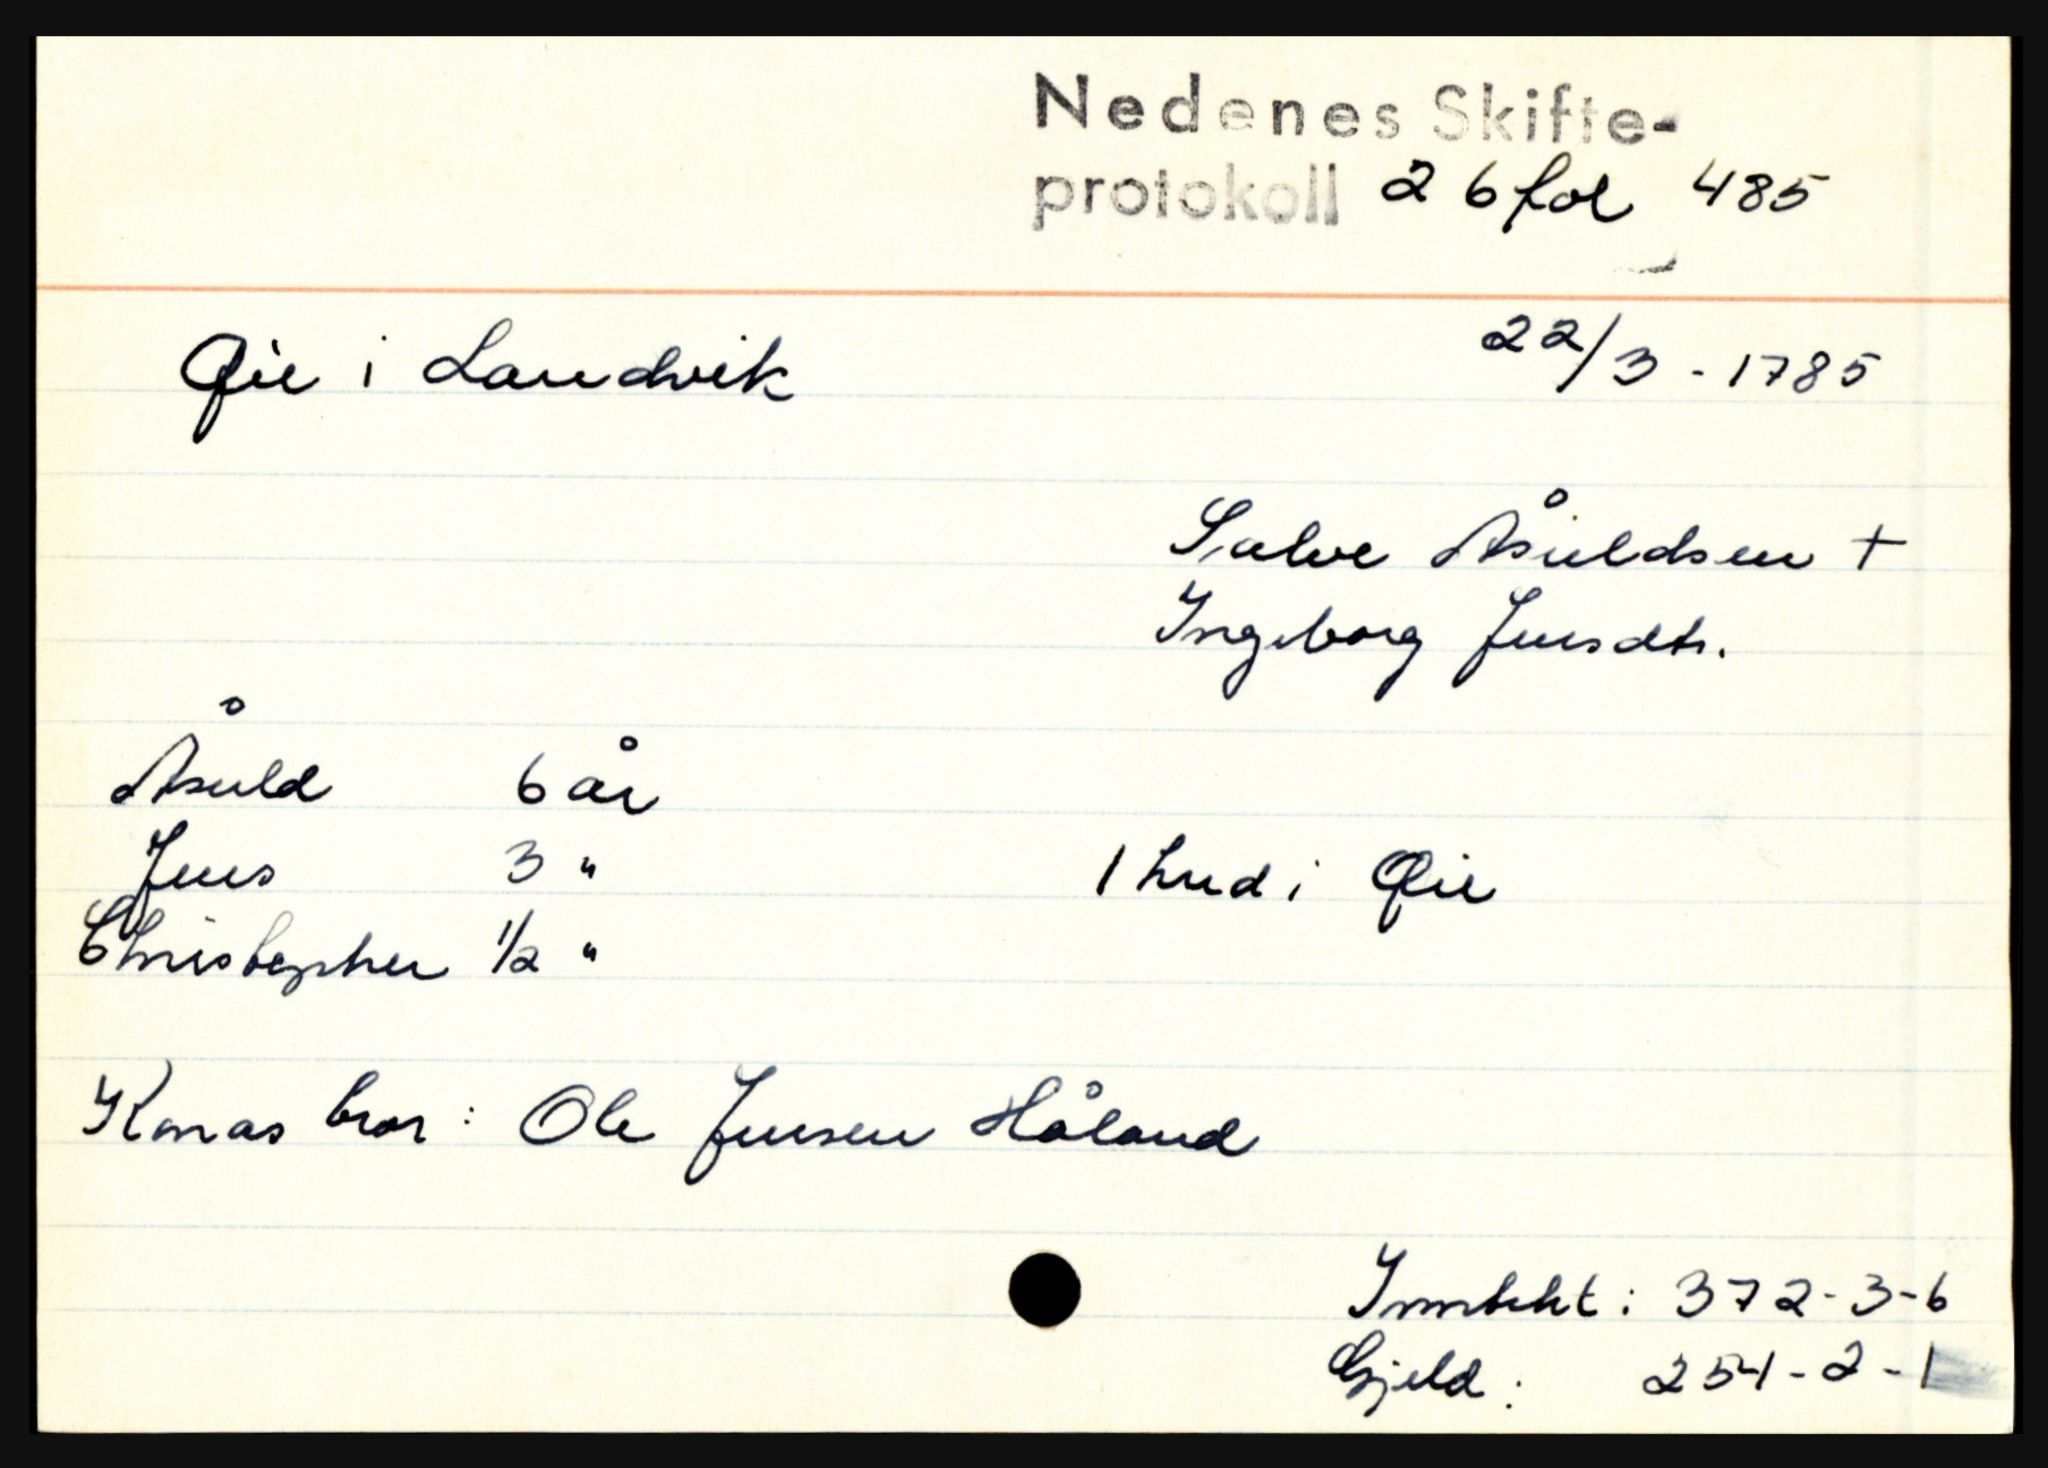 Nedenes Skifte-
protokoll 26 fol 485
Øie i Landvik 22/3 - 1785
Salve Åsuldsen +
Ingeborg Jensdtr.
Åsuld 6 år
Jens 3 " 1 hud i Øie
Christopher 1/2 "
Konas bror : Ole Jensen Håland
Inntekt : 372-3-6
Gjeld : 254-2-1